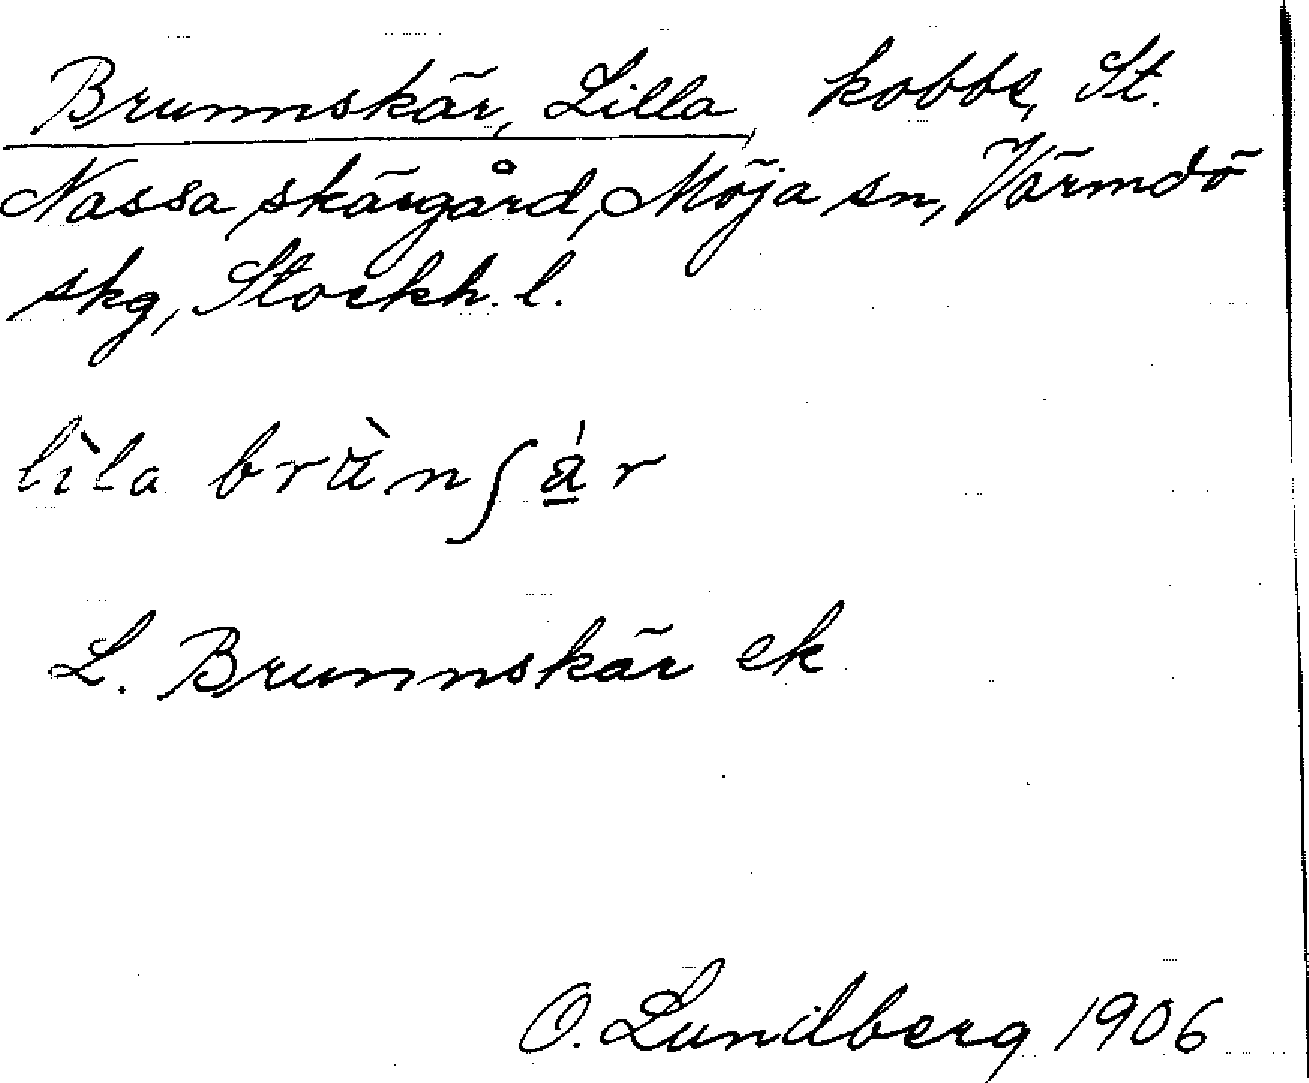 Brunnskär, Lilla, kobbe, St.
Nassa skärgård, Möja sn, Värmdö
skg, Stockh. l.
lìla brùnʃä́r
L. Brunnskär ek
O. Lundberg 1906